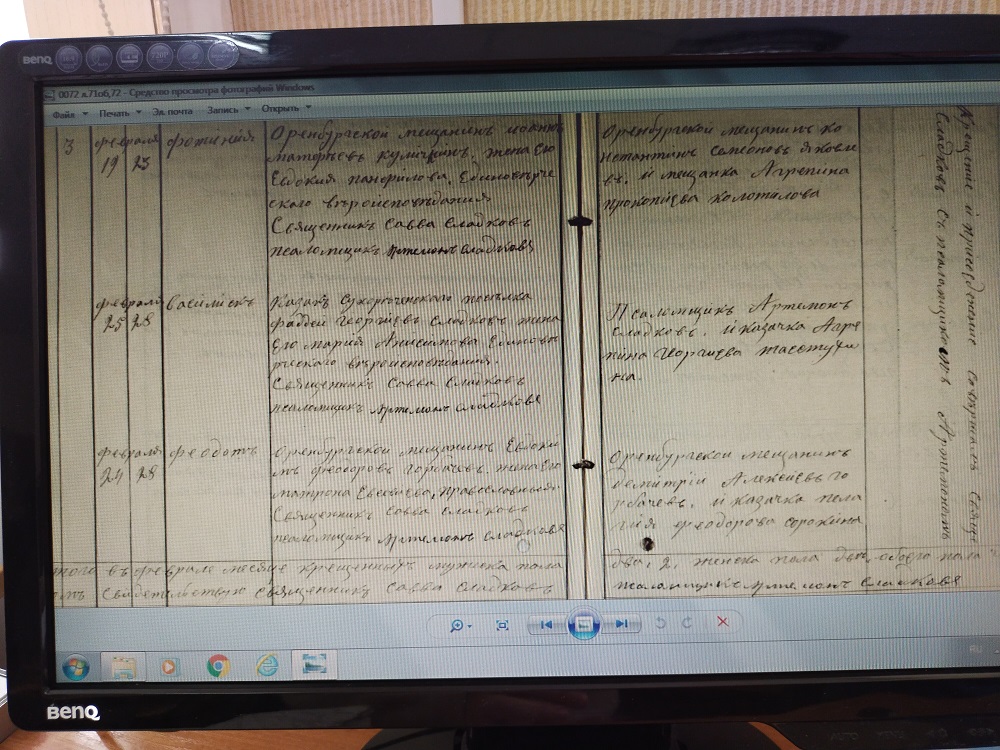 BENQ
0072 л.71об,72 - Средство просмотра фотографий Windows
Файл Печать Эл. почта Запись Открыть
3
февраля
19 23
фотинія
Оренбургской мещанинъ
матфѣевъ жена его
Евдокия панфилова,
скаго вѣроисповѣдания
Священникъ савва сладковъ
псаломщикъ Артемонъ сладковъ
Оренбургской мещанинъ ко
нстантинъ семеновъ яковле
въ, и мещанка Агрепина
прокопіева колотилова
февраля
25 28
василискъ
Казакъ посѣлка
фаддей георгіевъ сладковъ жена
его мария Анисимова Единовѣ
рческаго вѣроисповѣдания.
Священникъ савва сладковъ
псаломщикъ Артемонъ сладковъ
Псаломщикъ Артемонъ
сладковъ, и казачка Агре
пина георгиева
на.
февраля
24 28
феодотъ
Оренбургской мещанинъ Евдоки
мъ феодоровъ горбачевъ, жена его
матрона православныя
Священникъ савва сладковъ
псаломщикъ Артемонъ сладковъ
Оренбургской мещанинъ
димитрій Алексіевъ го
рбачевъ, и казачка пела
гия феодорова сорокина
въ февралѣ месяце крещенныхъ мужеска пола
два, 2, женска пола два, обоего пола
священникъ савва сладковъ
псаломщикъ Артемонъ сладковъ
Крещение и совершалъ свяще
сладковъ съ псаломщикомъ Артемономъ
RU
BENQ
AUTO